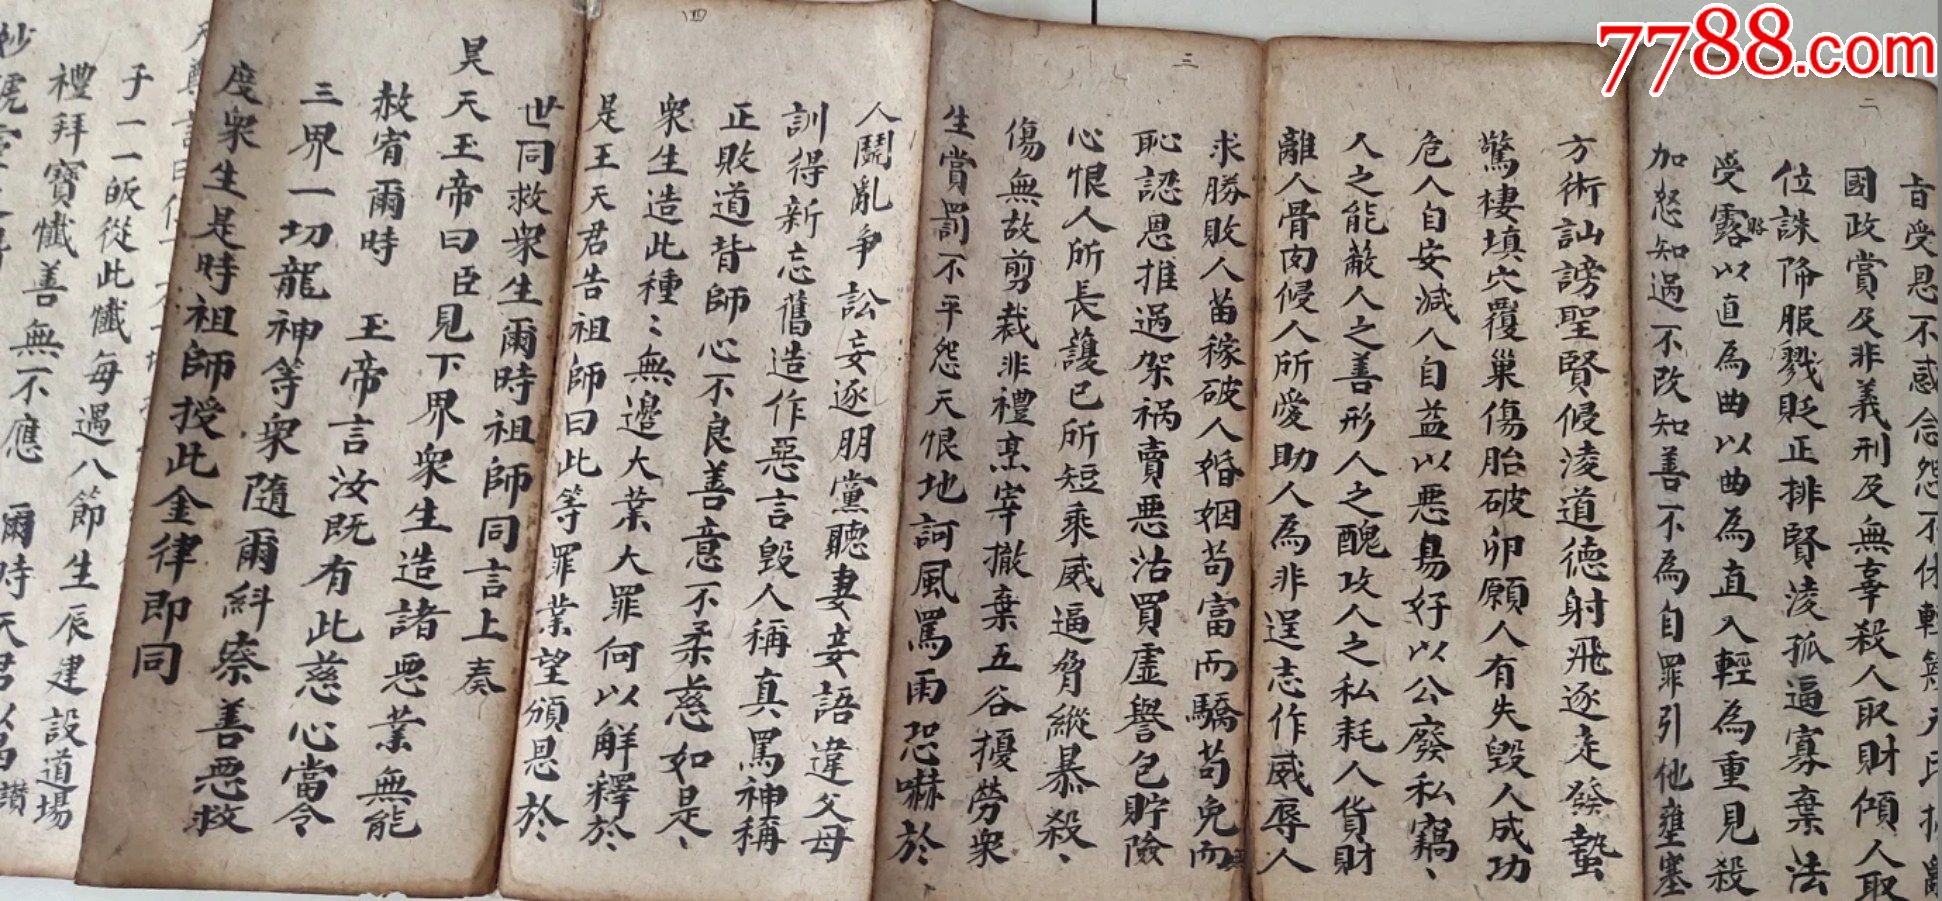 7788.com
二
旨受恩不感念怨不休輕
國政賞及非義刑及無辜殺人取財傾人取
位誅降服戮貶正排賢淩孤逼寡棄法
受露賂以直為曲以曲為直入輕為重見殺
加怒知過不改知善不為自罪引他壅塞
方術訕謗聖賢侵淩道德射飛逐走發蟄
驚棲填穴覆巢傷胎破卵願人有失毀人成功
危人自安減人自益以惡易好以公廢私竊丶
人之能蔽人之善形人之醜攻人之私耗人貨財
離人骨肉侵人所愛助人為非逞志作威辱人
三
求勝敗人苗稼破人婚姻苟富而驕苟免而無
恥認恩推過架禍賣惡沽買虛譽包貯險
心恨人所長護己所短乘威逼脅縱暴殺丶
傷無故剪裁非禮烹宰撤棄五谷擾勞衆
生賞罰不平怨天恨地訶風罵雨恐嚇於丶
四
人鬪亂爭訟妄逐朋黨聽妻妾語違父母
訓得新忘舊造作惡言毀人稱真罵神稱
正敗道背師心不良善意不柔慈如是丶
衆生造此種〻無邊大業大罪何以解釋於
是王天君告祖師曰此等罪業望頒恩於
世同救衆生爾時祖師同言上奏
昊天玉帝曰臣見下界衆生造諸惡業無能
赦宥爾時 玉帝言汝既有此慈心當令
三界一切龍神等衆隨爾糾察善惡救
度衆生是時祖師授此金律即同
子一一皈從此懺每遇八節生辰建設道場
禮拜寶懺善無不應 爾時天君以偈讚